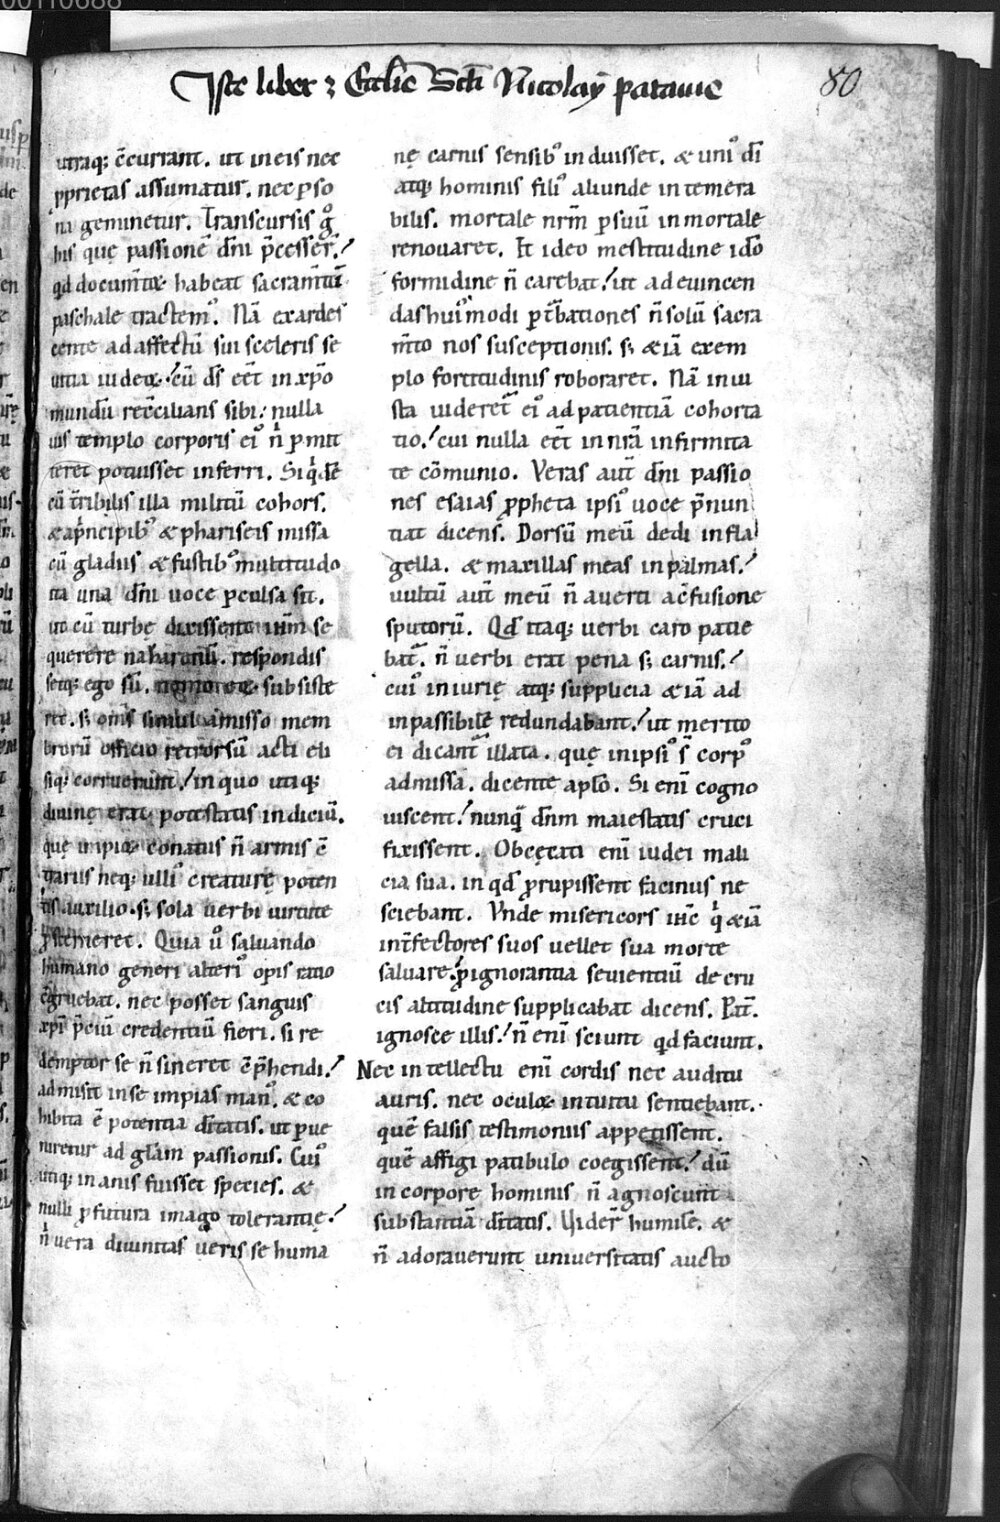 00110688
Iste liber ꝫ Eccl̄ie Sc̄ti Nicolaÿ patauie
80
utraq; c̄currant. ut in eis nec
ꝓprietas assumatur. nec ꝑso
na geminetur. Transcursis g̊
his quę passionē dn̄i p̄cesser̄.
qd documtꝫ habeat sacram̄tū
paschale tractem᷒. Nā exardes
cente ad affectū sui sceleris se
uitia iudeoꝝ. cū ds̄ eēt in xp̄o
mundū rec̄cilians sibi. nulla
uis templo corporis ei᷒ n̄ ꝑmit
teret potuisset inferri. Siq̇dē
cū t̄ribilis illa militū cohors.
& a pͥncipib᷒ & phariseis missa
cū gladiis & fustib᷒ multitudo
ita una dn̄i uoce ꝑculsa sit.
ut cū turbę dixissent ihm̄ se
querere nazarenū. respondis
setq; ego sū. subsiste
ret. s; om̄s simul amisso mem
brorū officio retrorsū acti eli
siq; corruerunt. in quo utiq;
diuinę erat potestatis indiciū.
quę impioꝝ conatus n̄ armis ē
tarius neq; ulli᷒ creaturę poten
tis auxilio. s; sola uerbi uirtute
ꝓsterneret. Quia ů saluando
humano generi alteri᷒ opis ratio
c̄gruebat. nec posset sanguis
xp̄i p̄ciū credentiū fieri. si re
demptor se n̄ sineret c̄p̄hendi.
admisit in se impias man᷒. & co
hibita ē potentia dītatis. ut ꝑue
niretur ad glām passionis. Cui᷒
utiq; inanis fuisset species. &
nulli ꝓfutura imago tolerantię.
nͥ uera diuinitas ueris se huma
nę carnis sensib᷒ induisset. & uni᷒ dī
atq; hominis fili᷒ aliunde intemera
bilis. mortale nr̄m ꝑ suū inmortale
renouaret. Et ideo mestitudine ido̅
formidine n̄ carebat. ut ad euincen
das hui᷒modi ꝑt̄bationes n̄ solū sacra
m̄to nos susceptionis. s; & iā exem
plo fortitudinis roboraret. Nā iniu
sta uideret᷒ ei᷒ ad patientiā cohorta
tio. cui nulla eēt in nrā infirmita
te cōmunio. Veras aut̄ dn̄i passio
nes esaias ꝓpheta ipsi᷒ uoce p̄nun
tiat dicens. Dorsū meū dedi in fla
gella. & maxillas meas in palmas.
uultū aut̄ meū n̄ auerti a c̄fusione
sputorū. Qd̄ itaq; uerbi caro patie
bat᷒. n̄ uerbi erat pena s; carnis.
cui᷒ iniurię atq; supplicia & iā ad
inpassibilē redundabant. ut merito
ei dicant᷒ illata. quę in ipsi᷒ s̄ corp̊
admissa. dicente apl̄o. Si enī cogno
uissent. nunqͣ dn̄m maiestatis cruci
fixissent. Obcęcati enī iudei mali
cia sua. in qd̄ ꝓrupissent facinus ne
sciebant. Vnde misericors ihc̄ qͥ & iā
int̄fectores suos uellet sua morte
saluare. ꝓ ignorantia seuientiū de cru
cis altitudine supplicabat dicens. Pat̄.
ignosce illis. n̄ enī sciunt qd faciunt.
Nec intellectu enī cordis nec auditu
auris. nec oculoꝝ intuitu sentiebant.
quē falsis testimoniis appetissent.
quē affigi patibulo coegissent. dū
in corpore hominis n̄ agnoscunt
substantiā dītatis. Uider̄ humilē. &
n̄ adorauerunt uniuersitatis aucto